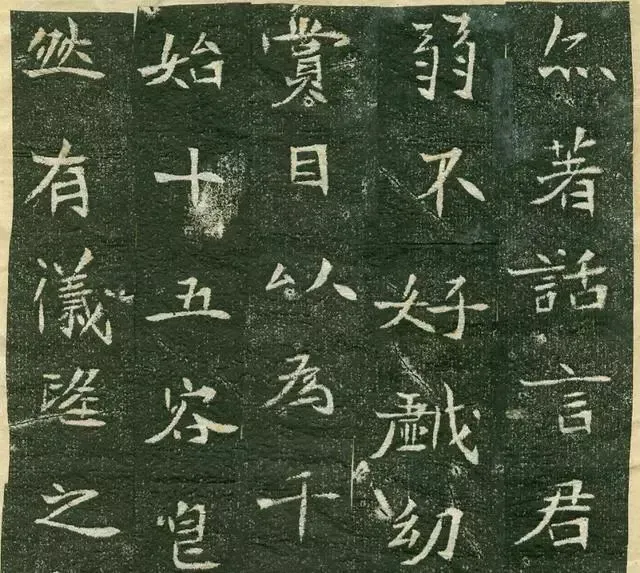 亦著話言君
弱不好戯幼
賞目以為千
始十五容皃
然有儀隆之